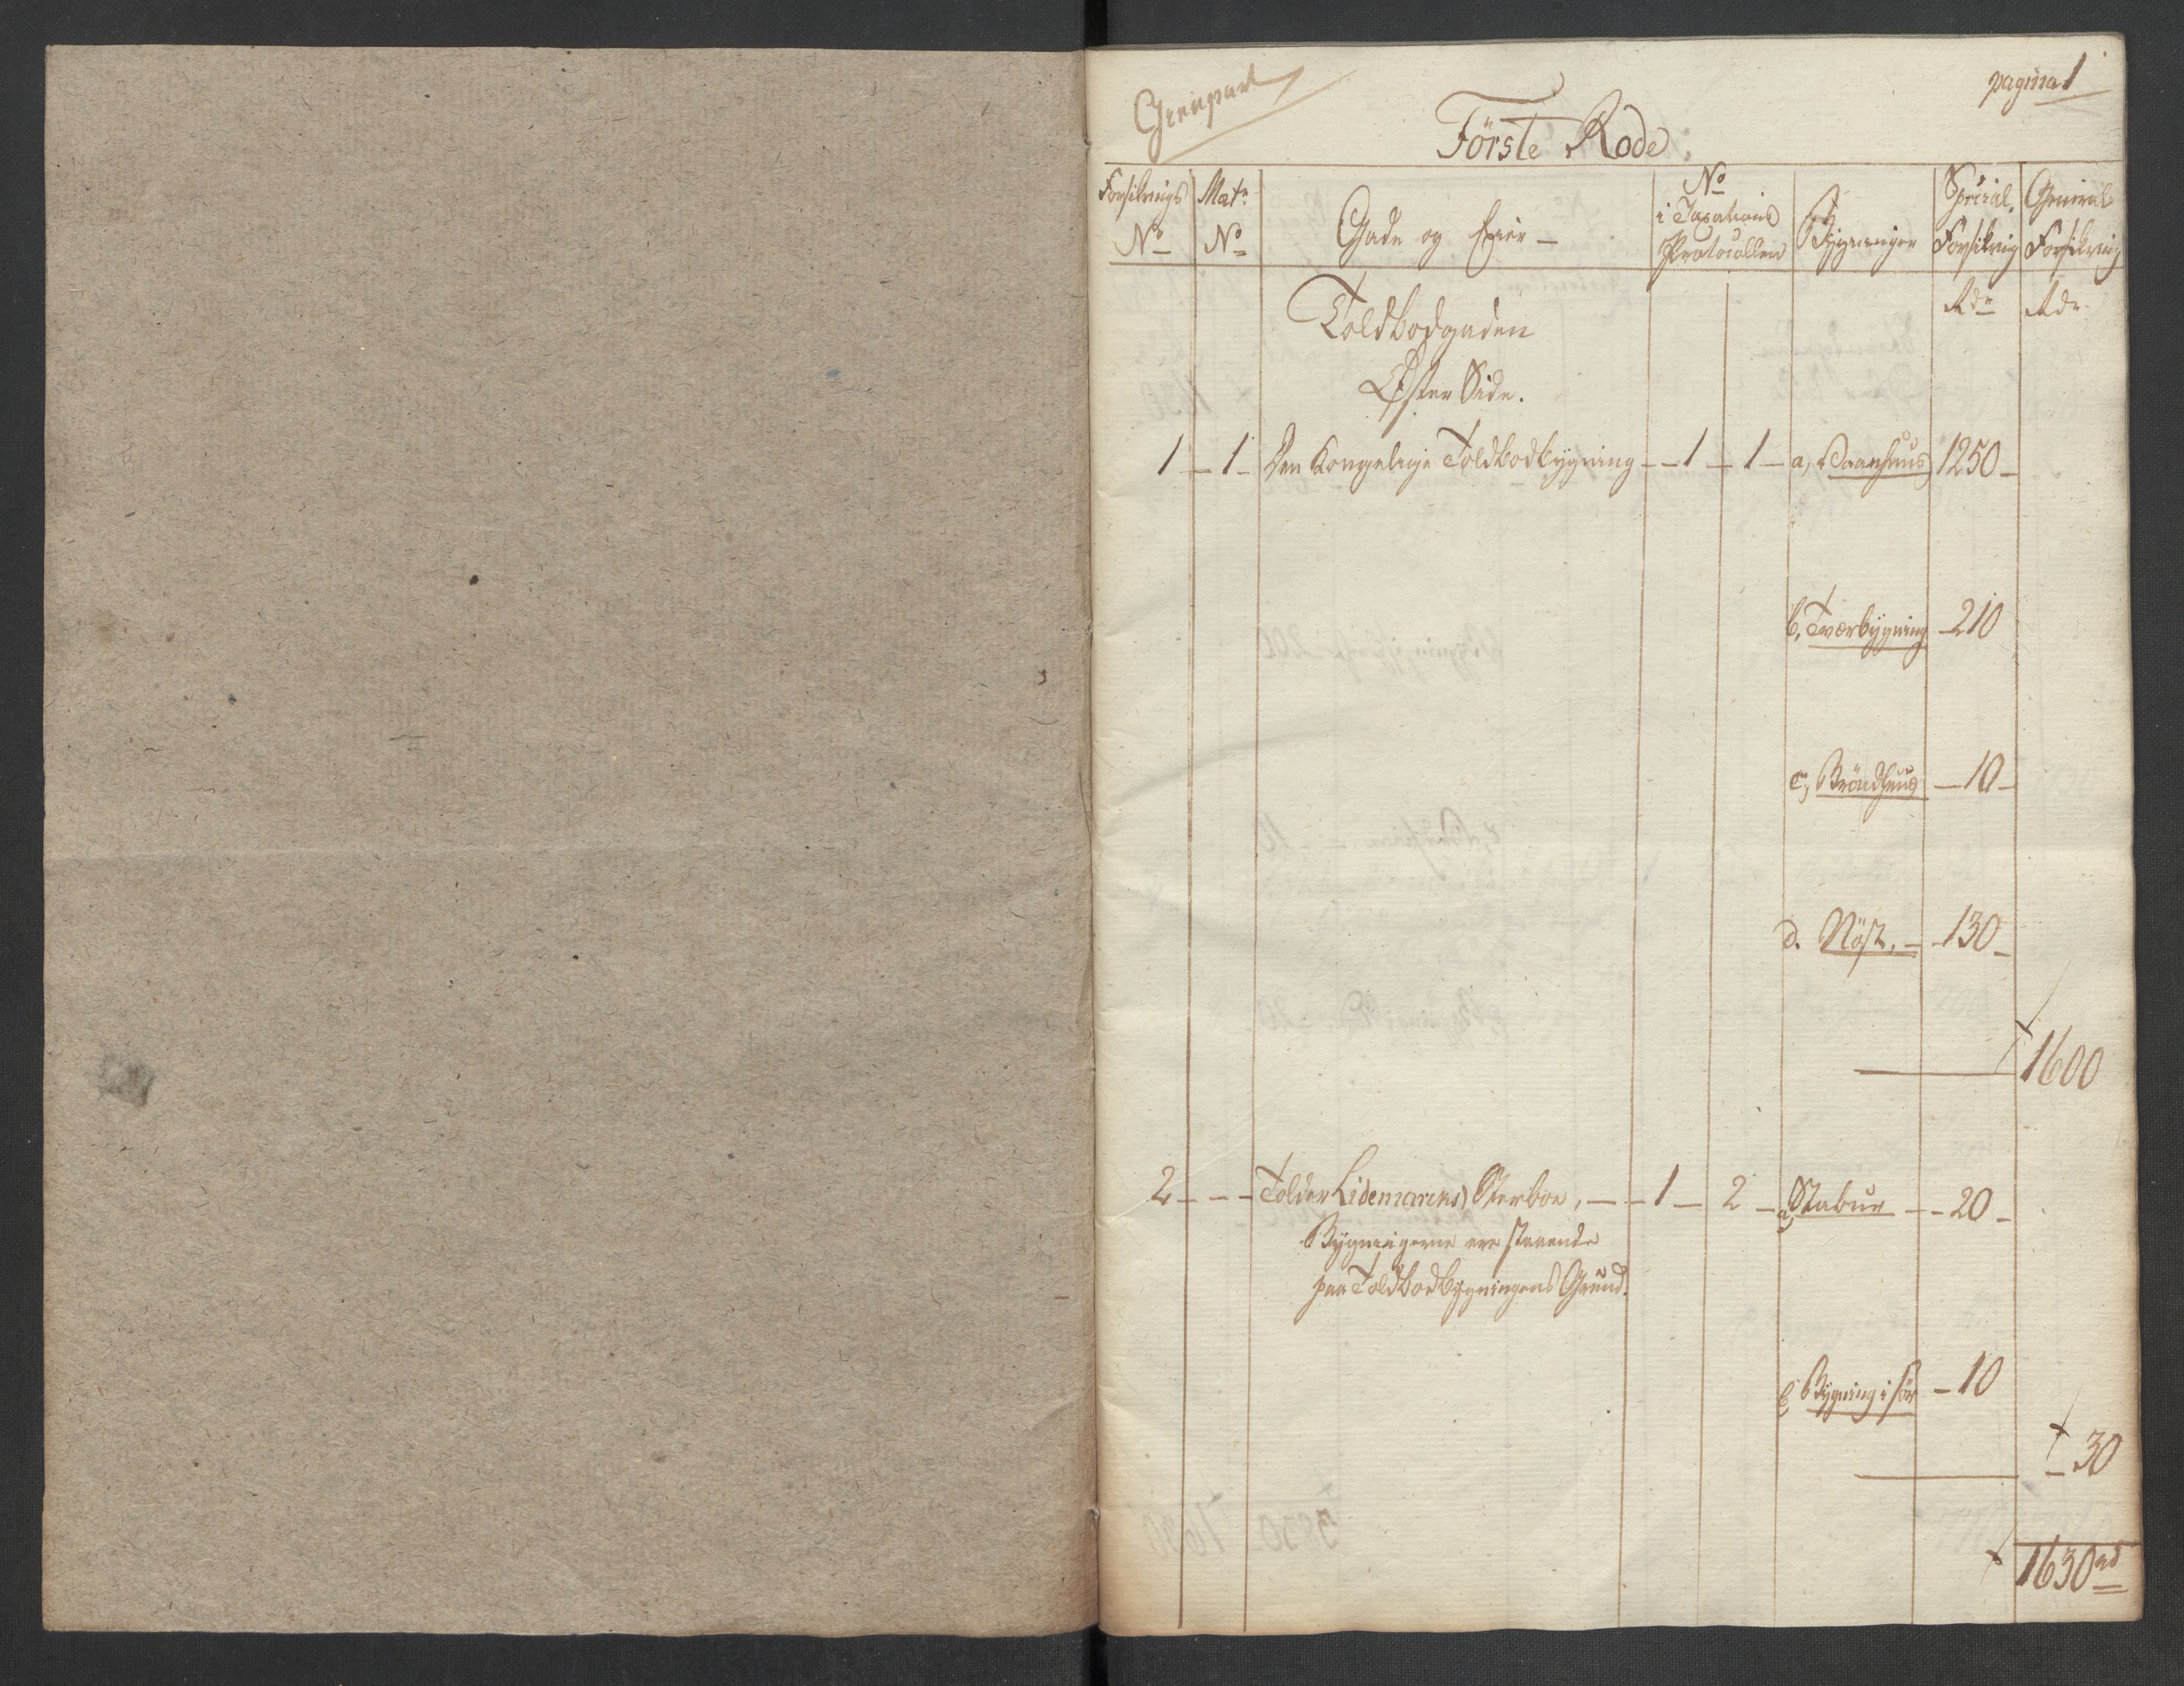 pagina 1
Genpart
Förste Rode.
Forsikrings No
Matr. No
Gade og Eier
No i Taxations Protocollen
Bygninger
Special Forsikring
General Forsikring
Rdr Rdr
Toldbodgaden
Øster Side.
1 - 1 - Den Kongelige Toldbodbygning - 1 - 1 - a, Vaanhuus 1250 -
b, Tværbygning - 210
c, Bröndhuus - 10 -
d. Nöst. - 130 -
1600
2 - - - Tolder Lidemarks Sterboe, - 1 - 2 - a, Stabur - 20 -
Bygningerne ere staaende
paa Toldbodbygningens Grund.
b, Bygning i sör - 10
30
1630 rd